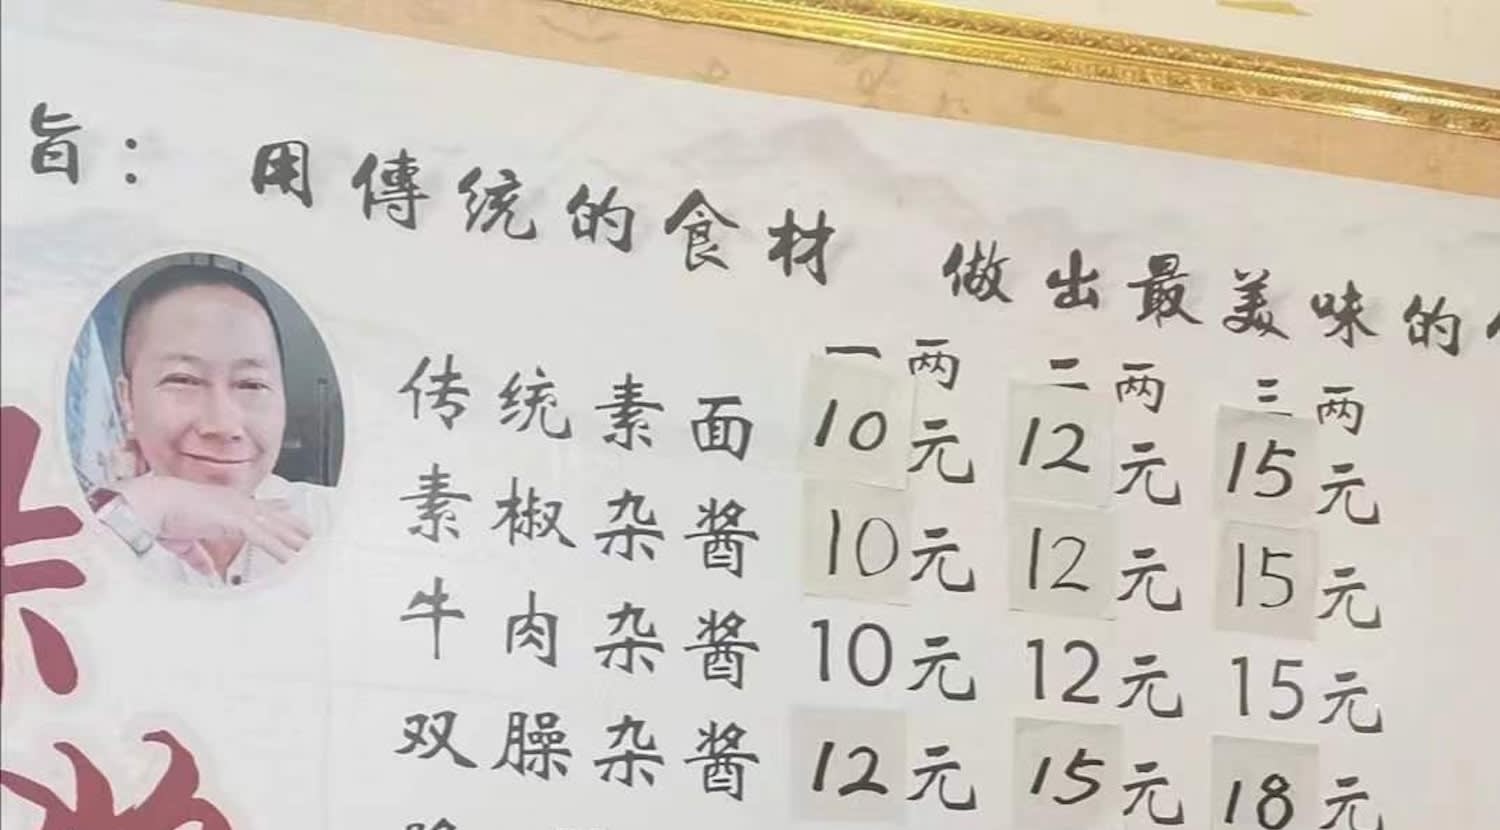 旨： 用傳統的食材 做出最美味的
一两 二两 三两
传统素面 10元 12元 15元
素椒杂酱 10元 12元 15元
牛肉杂酱 10元 12元 15元
双臊杂酱 12元 15元 18元